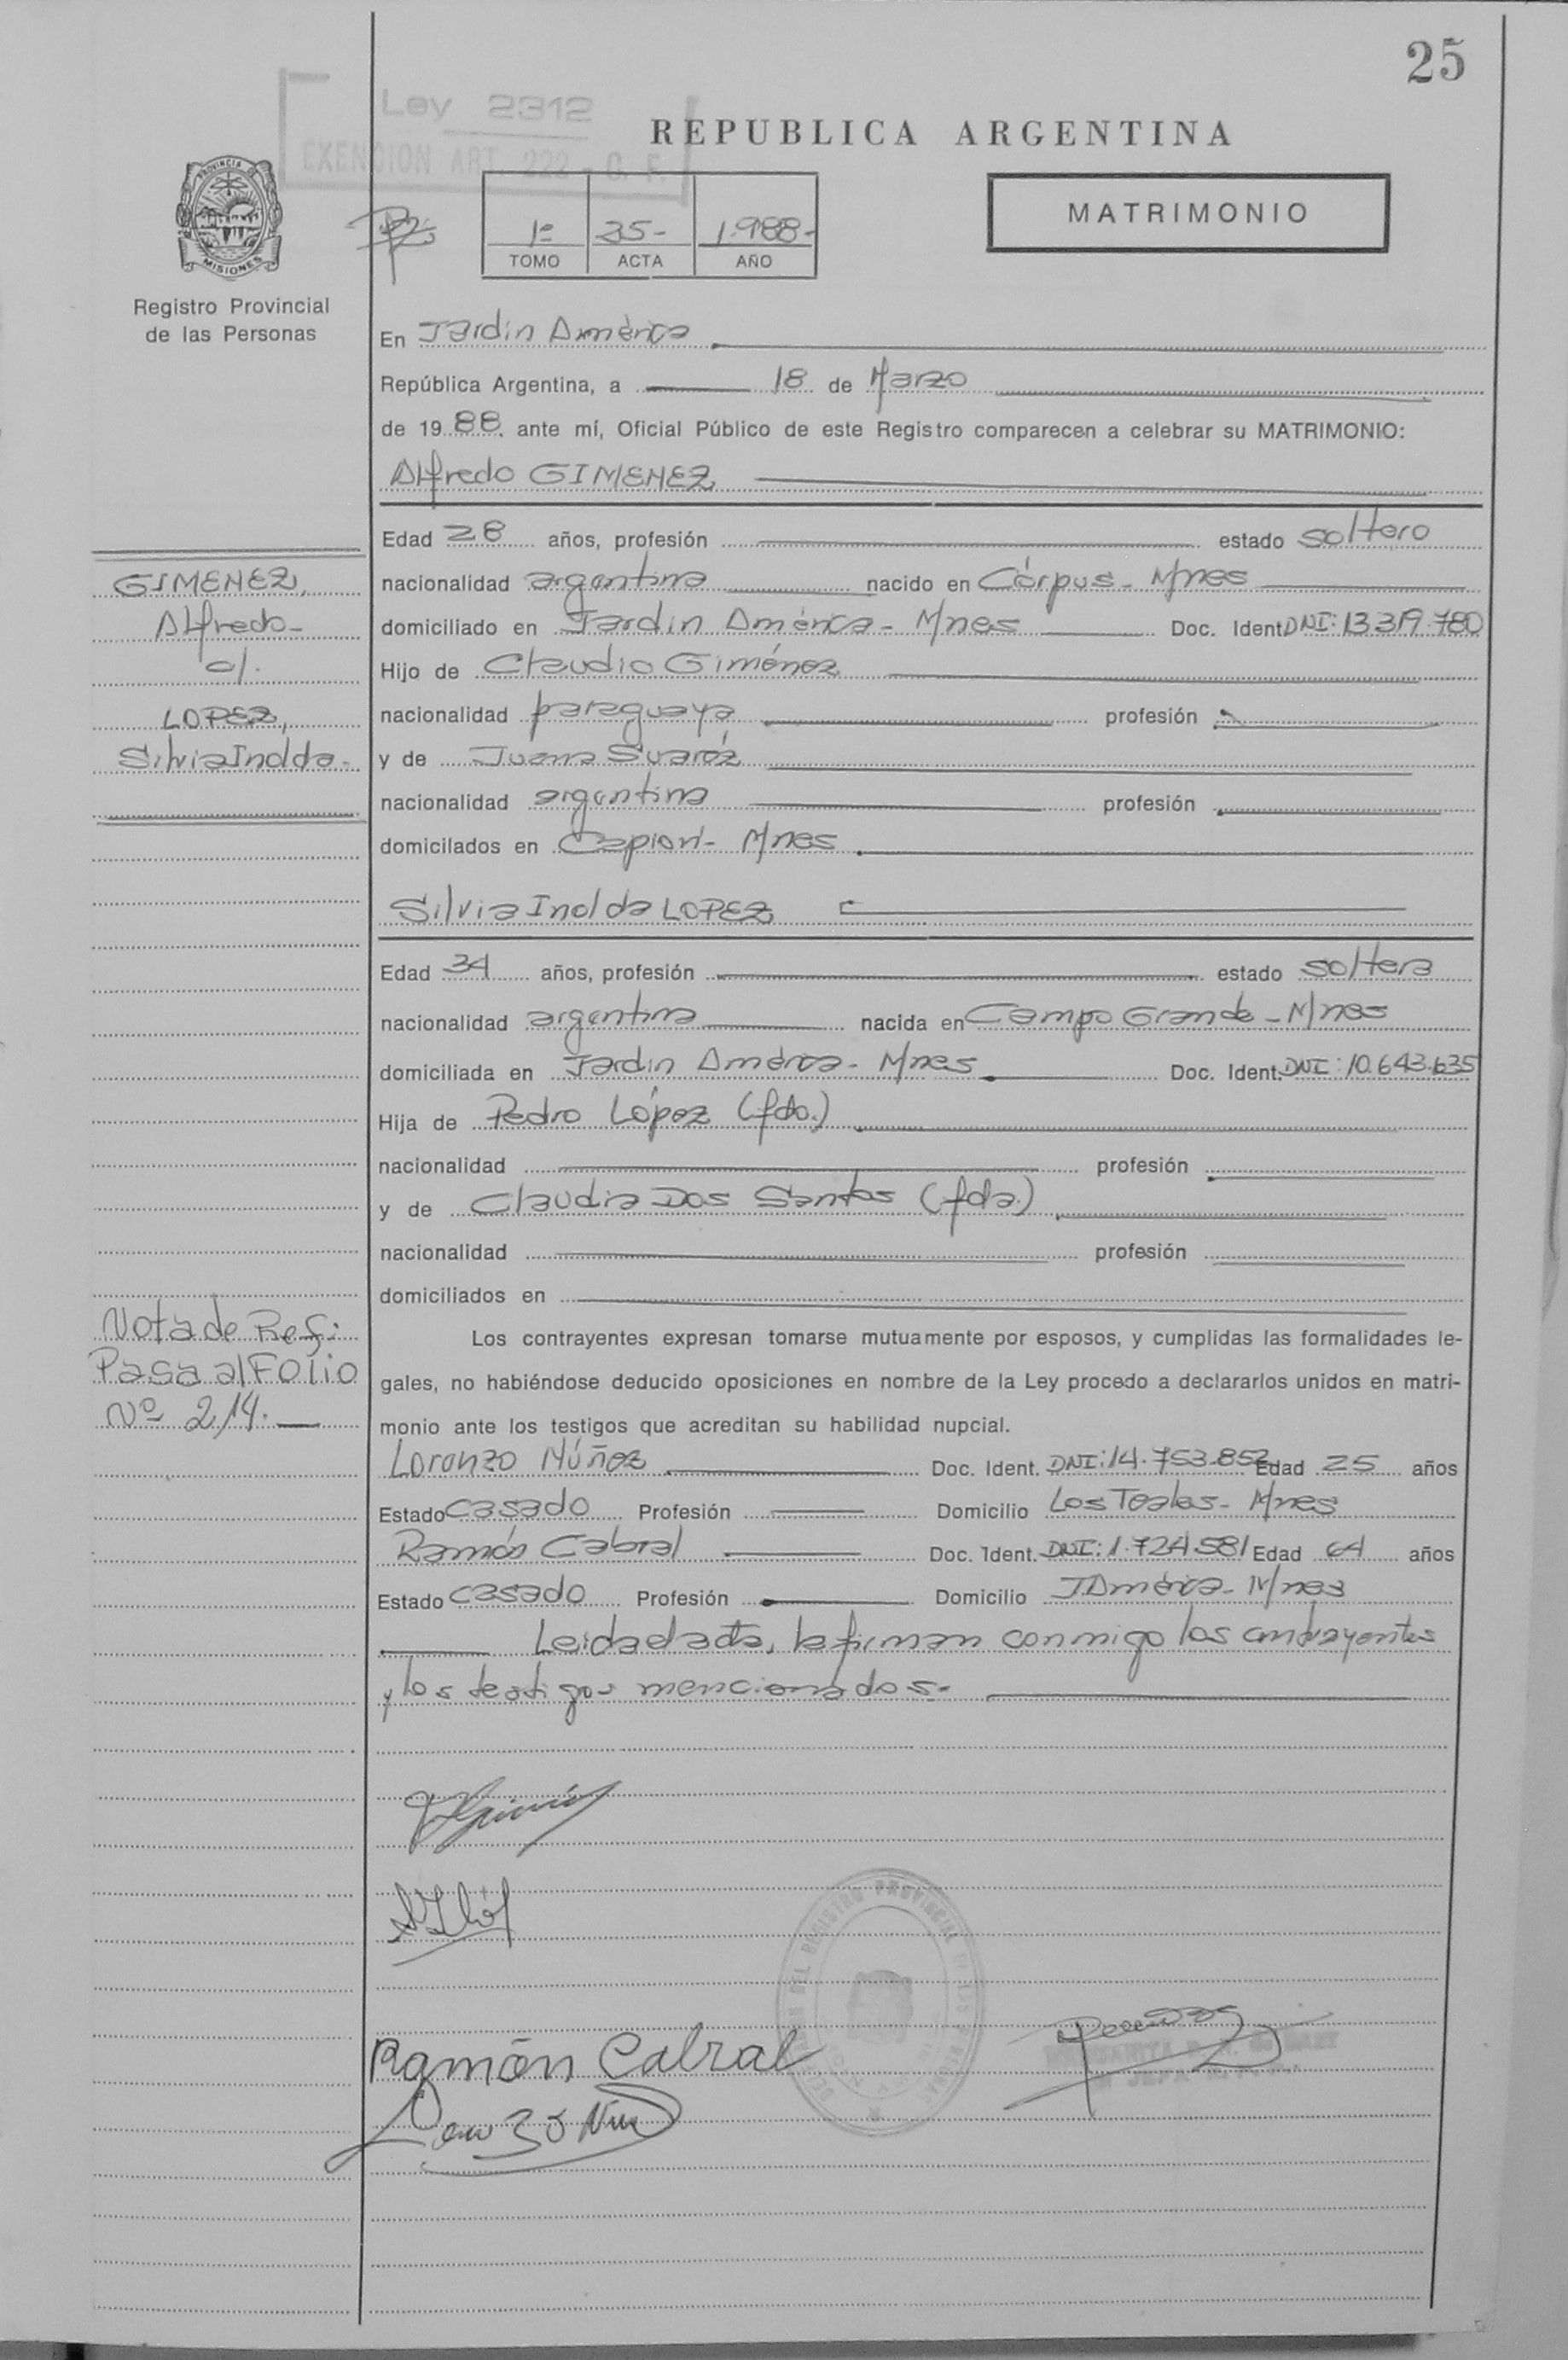 25
Ley 2312
EXENCION ART. 222 - C. F.
REPUBLICA ARGENTINA
PROVINCIA DE
MISIONES
Registro Provincial
de las Personas
1º 25- 1.988-
TOMO ACTA AÑO
MATRIMONIO
En Jardín América
República Argentina, a 18 de Marzo
de 1988. ante mí, Oficial Público de este Registro comparecen a celebrar su MATRIMONIO:
Alfredo GIMENEZ
Edad 28 años, profesión estado soltero
GIMENEZ,
Alfredo-
c/.
LOPEZ,
Silvia Inolda-
nacionalidad argentina nacido en Córpus- Mnes
domiciliado en Jardín América- Mnes Doc. Ident. DNI: 13.319.780
Hijo de Claudio Giménez
nacionalidad paraguaya profesión
y de Juana Suaréz
nacionalidad argentina profesión
domicilados en Capioví- Mnes
Silvia Inolda LOPEZ
Edad 34 años, profesión estado soltera
nacionalidad argentina nacida en Campo Grande- Mnes
domiciliada en Jardín América- Mnes Doc. Ident. DNI: 10.643.635
Hija de Pedro López (fdo.)
nacionalidad profesión
y de Claudia Dos Santos (fda)
nacionalidad profesión
domiciliados en
Nota de Ref:
Pasa al FOlio
Nº 214.
Los contrayentes expresan tomarse mutuamente por esposos, y cumplidas las formalidades le-
gales, no habiéndose deducido oposiciones en nombre de la Ley procedo a declararlos unidos en matri-
monio ante los testigos que acreditan su habilidad nupcial.
Lorenzo Núñez Doc. Ident. DNI: 14.753.852 Edad 25 años
Estado casado Profesión Domicilio Los Teales- Mnes
Ramón Cabral Doc. Ident. DNI: 1.724.581 Edad 64 años
Estado casado Profesión Domicilio J. América- Mnes
Leida el acta, la firman conmigo los contrayentes
y los testigos mencionados.
Ramón Cabral